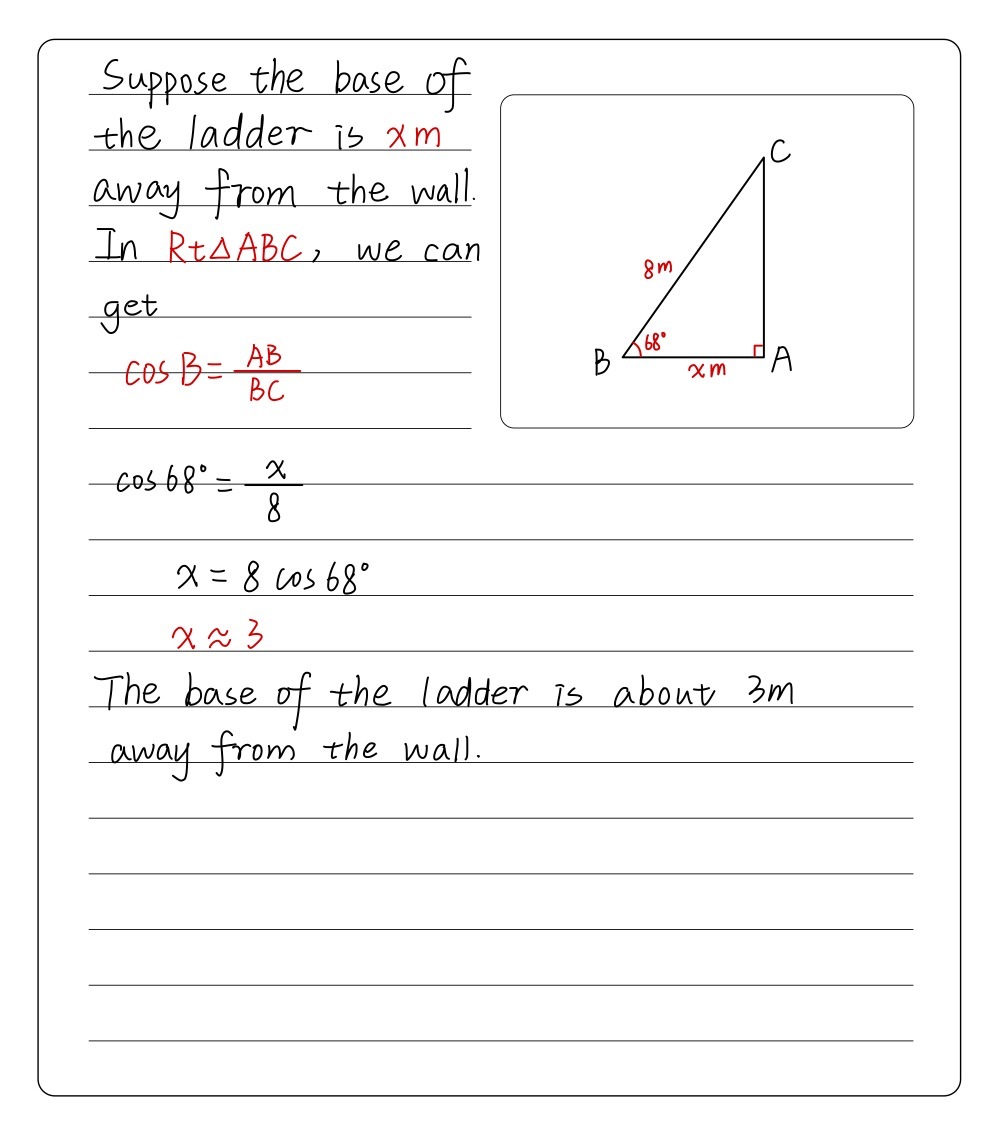 Suppose the base of
the ladder is x m
away from the wall.
In Rt△ABC, we can
get
cos B = AB/BC
cos 68° = x/8
x = 8 cos 68°
x ≈ 3
The base of the ladder is about 3m
away from the wall.
C
8m
68°
B
A
x m